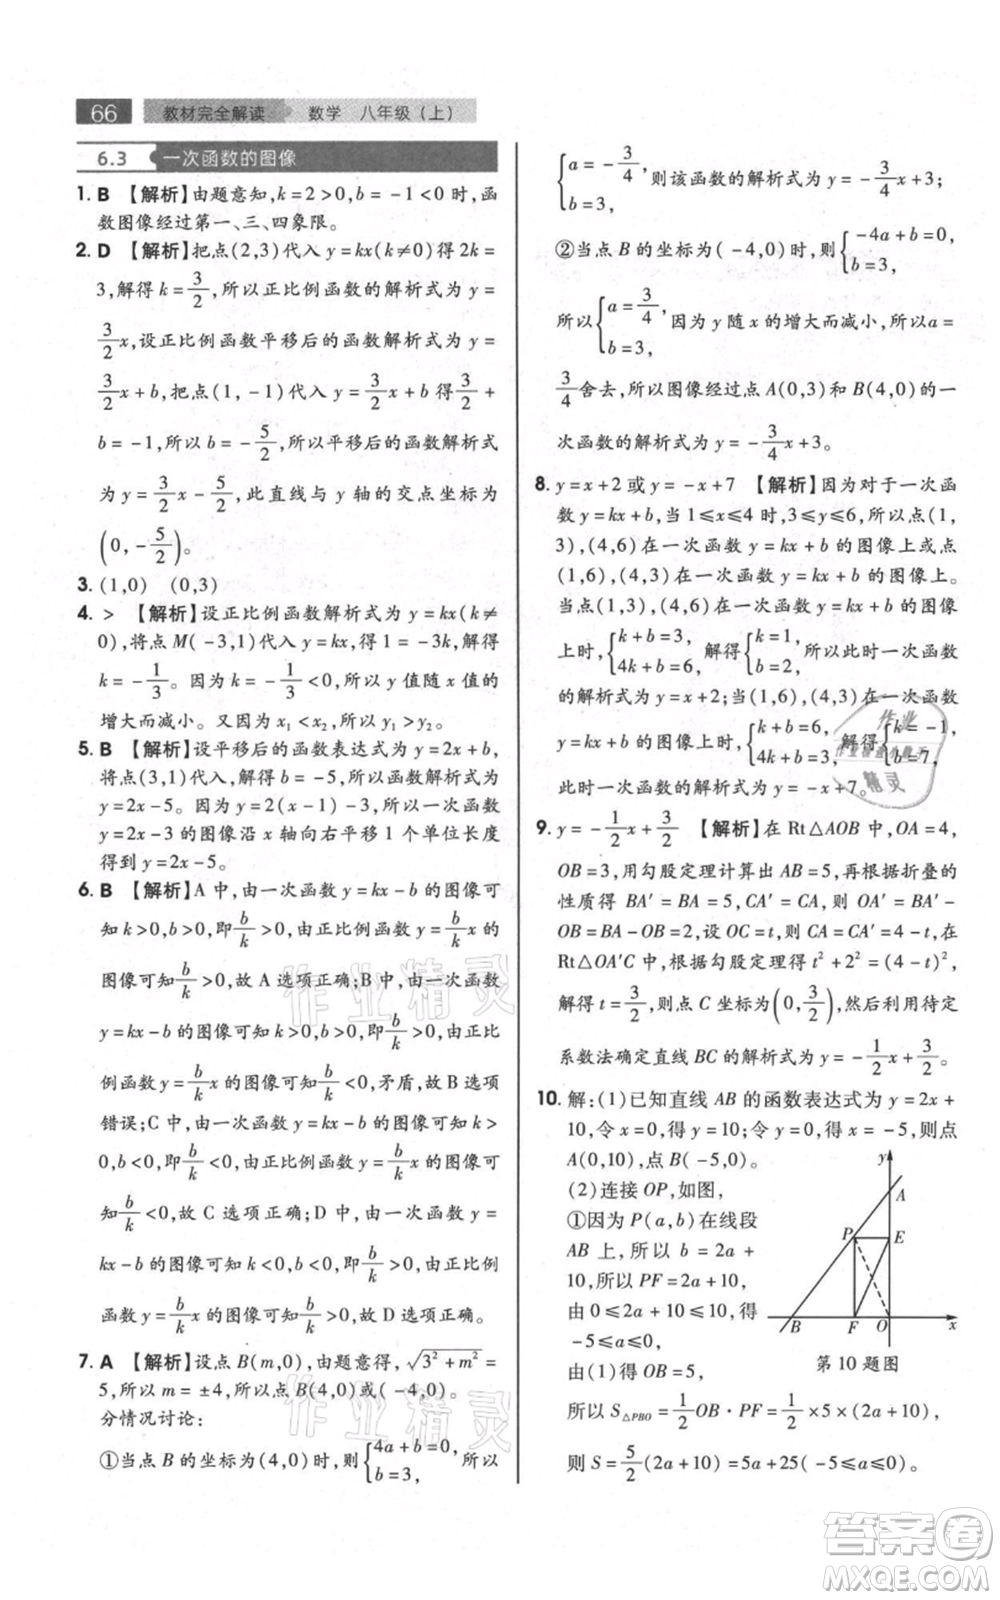 66 教材完全解读 数学 八年级(上)
6.3 一次函数的图像
1. B 【解析】由题意知,k=2>0,b=-1<0时,函
数图像经过第一、三、四象限。
2. D 【解析】把点(2,3)代入y=kx(k≠0)得2k=
3,解得k=3/2,所以正比例函数的解析式为y=
3/2x,设正比例函数平移后的函数解析式为y=
3/2x+b,把点(1,-1)代入y=3/2x+b得3/2+
b=-1,所以b=-5/2,所以平移后的函数解析式
为y=3/2x-5/2,此直线与y轴的交点坐标为
(0,-5/2)。
3. (1,0) (0,3)
4. > 【解析】设正比例函数解析式为y=kx(k≠
0),将点M(-3,1)代入y=kx,得1=-3k,解得
k=-1/3。因为k=-1/3<0,所以y值随x值的
增大而减小。又因为x₁<x₂,所以y₁>y₂。
5. B 【解析】设平移后的函数表达式为y=2x+b,
将点(3,1)代入,解得b=-5,所以函数解析式为
y=2x-5。因为y=2(x-1)-3,所以一次函数
y=2x-3的图像沿x轴向右平移1个单位长度
得到y=2x-5。
6. B 【解析】A中,由一次函数y=kx-b的图像可
知k>0,b>0,即b/k>0,由正比例函数y=b/kx的
图像可知b/k>0,故A选项正确;B中,由一次函数
y=kx-b的图像可知k>0,b>0,即b/k>0,由正比
例函数y=b/kx的图像可知b/k<0,矛盾,故B选项
错误;C中,由一次函数y=kx-b的图像可知k>
0,b<0,即b/k<0,由正比例函数y=b/kx的图像可知
b/k<0,故C选项正确;D中,由一次函数y=
kx-b的图像可知k>0,b<0,即b/k<0,由正比例
函数y=b/kx的图像可知b/k<0,故D选项正确。
7. A 【解析】设点B(m,0),由题意得,√(3²+m²)=
5,所以m=±4,所以点B(4,0)或(-4,0)。
分情况讨论:
①当点B的坐标为(4,0)时,则{4a+b=0, b=3, 所以
{a=-3/4, b=3, 则该函数的解析式为y=-3/4x+3;
②当点B的坐标为(-4,0)时,则{-4a+b=0, b=3,
所以{a=3/4, b=3. 因为y随x的增大而减小,所以a=
3/4舍去,所以图像经过点A(0,3)和B(4,0)的一
次函数的解析式为y=-3/4x+3。
8. y=x+2或y=-x+7 【解析】因为对于一次函
数y=kx+b,当1≤x≤4时,3≤y≤6,所以点(1,
3),(4,6)在一次函数y=kx+b的图像上或点
(1,6),(4,3)在一次函数y=kx+b的图像上。
当点(1,3),(4,6)在一次函数y=kx+b的图像
上时,{k+b=3, 4k+b=6, 解得{k=1, b=2, 所以此时一次函数
的解析式为y=x+2;当(1,6),(4,3)在一次函数
y=kx+b的图像上时,{k+b=6, 4k+b=3, 解得{k=-1, b=7,
此时一次函数的解析式为y=-x+7。
9. y=-1/2x+3/2 【解析】在Rt△AOB中,OA=4,
OB=3,用勾股定理计算出AB=5,再根据折叠的
性质得BA′=BA=5,CA′=CA,则OA′=BA′-
OB=BA-OB=2,设OC=t,则CA=CA′=4-t,在
Rt△OA′C中,根据勾股定理得t²+2²=(4-t)²,
解得t=3/2,则点C坐标为(0,3/2),然后利用待定
系数法确定直线BC的解析式为y=-1/2x+3/2。
10. 解:(1)已知直线AB的函数表达式为y=2x+
10,令x=0,得y=10;令y=0,得x=-5,则点
A(0,10),点B(-5,0)。
(2)连接OP,如图,
①因为P(a,b)在线段
AB上,所以b=2a+
10,所以PF=2a+10,
由0≤2a+10≤10,得
-5≤a≤0,
由(1)得OB=5,
所以S△PBO=1/2OB·PF=1/2×5×(2a+10),
则S=5/2(2a+10)=5a+25(-5≤a≤0)。
y
A
P
E
B
F
O
x
第10题图
作业精灵
作业精灵
作业
精灵
答案卷
MXQE.COM